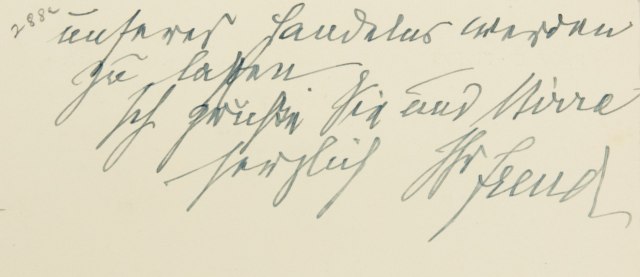 288c
unseres Handelns werden
zu lassen
Ich grüße Sie und Mirra
herzlich Ihr
Freud